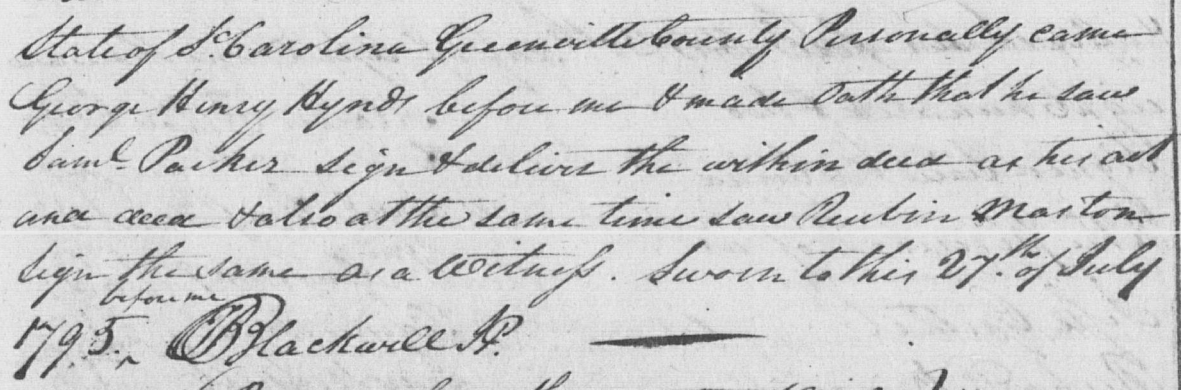 State of So Carolina Greenville County Personally came
George Henry Hynds before me & made Oath that he saw
Saml. Parker Sign & deliver the within deed as his act
and deed & also at the same time saw Reubin Maston
Sign the same as a Witness. Sworn to this 27th. of July
before me
1795. Blackwell JP.